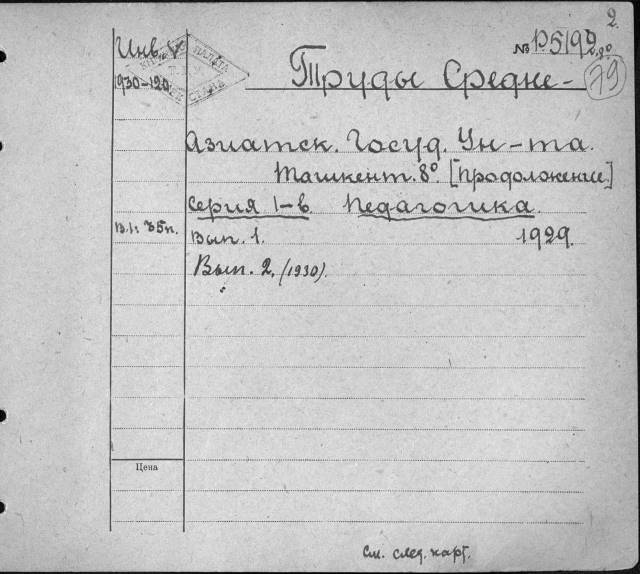 2.
Инв. V
№ p5192
Труды Средне-
79
1930-120
Азиатск. Госуд. Ун-та.
Ташкент. 8º. [Продолжение]
Серия I-в. Педагогика.
Вып. 1. 1929.
Вып. 2. (1930).
Цена
См. след. карт.